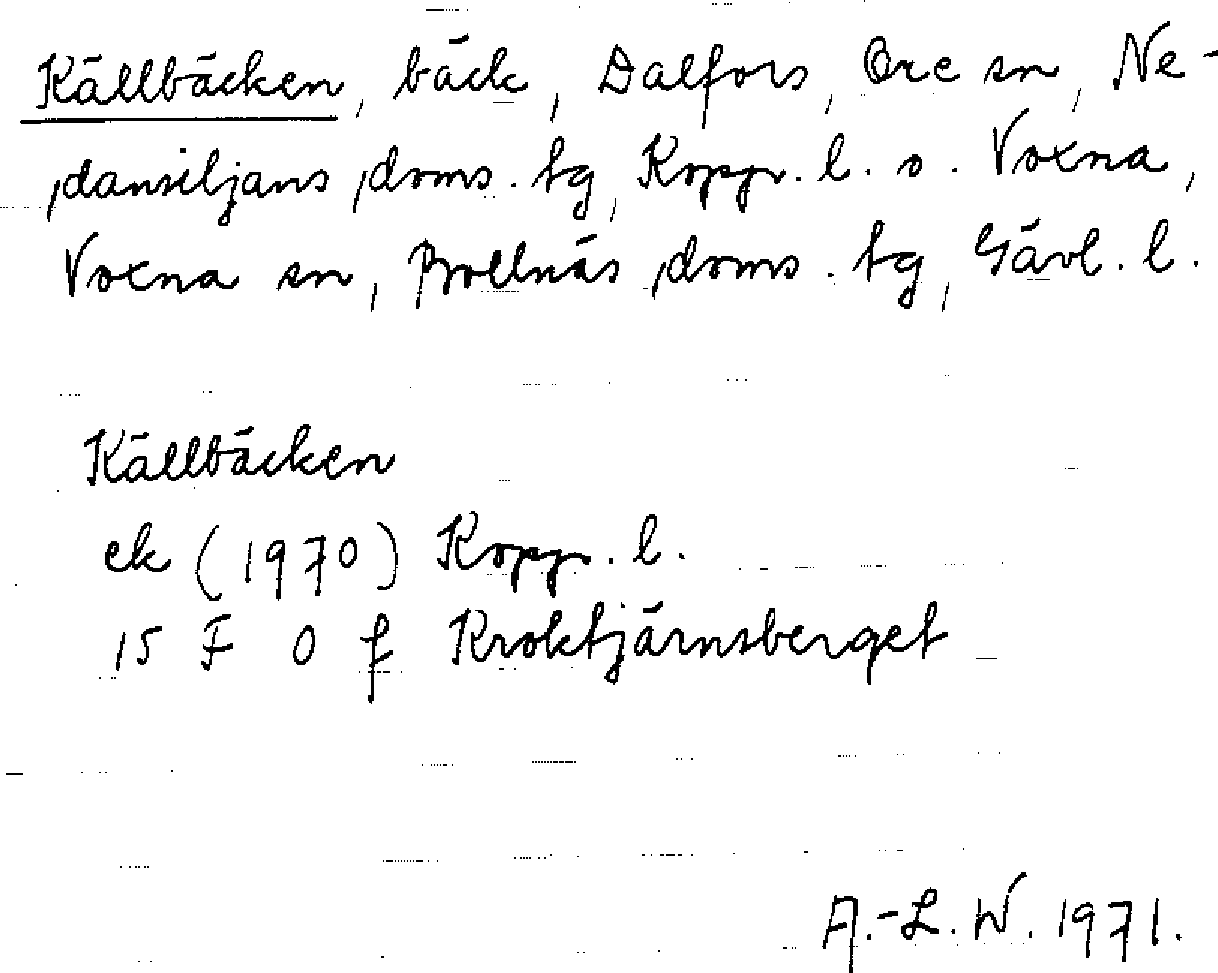 Källbäcken, bäck, Dalfors, Ore sn, Ne-
dansiljans doms. tg, Kopp. l. o. Voxna,
Voxna sn, Bollnäs doms. tg, Gävl. l.
Källbäcken
ek (1970) Kopp. l.
15 F 0 f Kroktjärnsberget
A.-L. W. 1971.